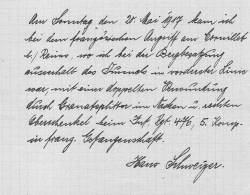 Am Sonntag den 20. Mai 1917 kam ich
bei dem französischen Angriff am Cornillet
b./ Reims, wo ich bei der Bergbesatzung
ausserhalb des Tunnels in vorderster Linie
war, mit einer doppelten Verwundung
durch Granatsplitter im Nacken u. rechten
Oberschenkel beim Inf. Rgt. 476, 5. Komp.
in franz. Gefangenschaft.
Hans Schweizer.